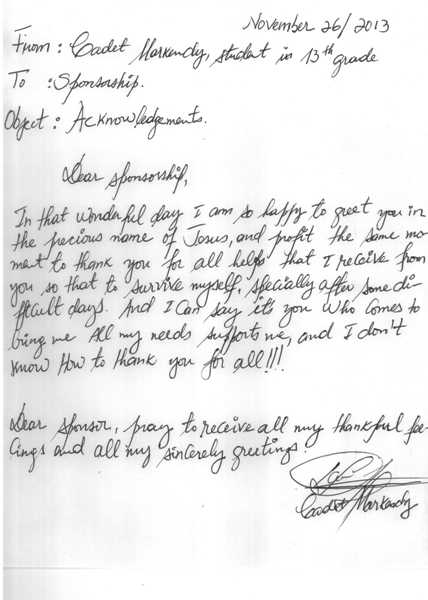 November 26/2013
From: Cadet Markendy, student in 13th grade
To :Sponsorship.
Object: Acknowledgements.
Dear Sponsorship,
In that wonderful day I am so happy to greet you in
the precious name of Jesus, and profit the same mo-
ment to thank you for all helps that I receive from
you so that to survive myself, specially after some di-
fficult days. And I can say it's you who comes to
bring me all my needs supports me, and I don't
know How to thank you for all!!!
Dear Sponsor, pray to receive all my thankful fee-
lings and all my sincerely greetings.
Cadet Markendy